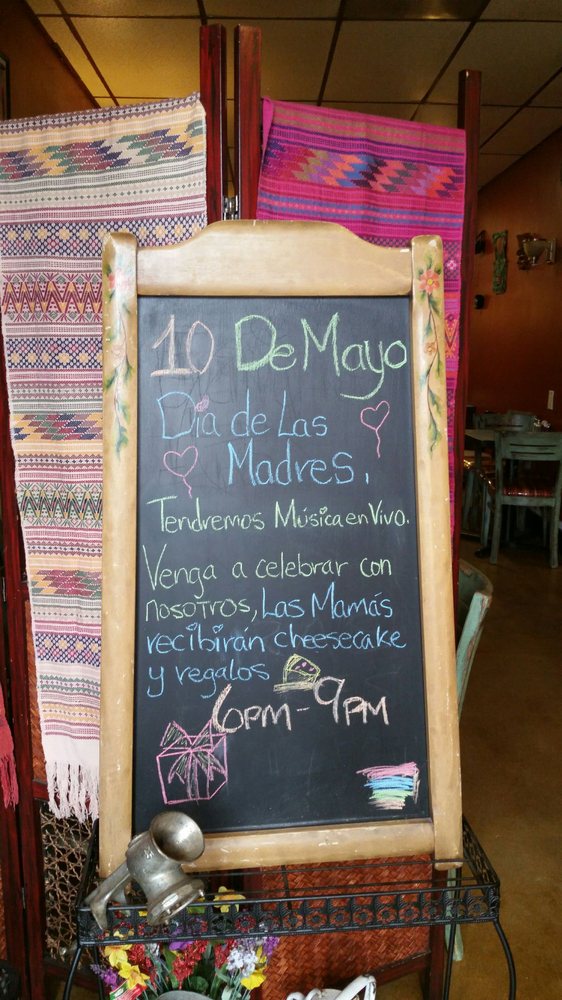 10 De Mayo
Día de Las
Madres.
Tendremos Música en Vivo.
Venga a celebrar con
nosotros, Las Mamás
recibirán cheesecake
y regalos
6PM-9PM